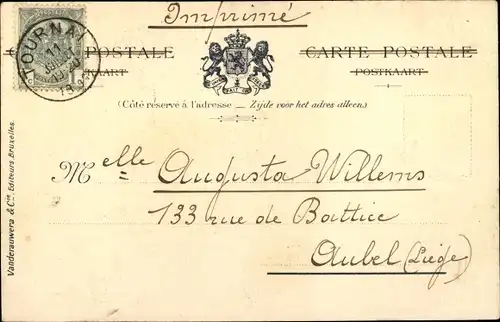 Imprimé
TOURNAI
11
CARTE POSTALE
POSTKAART
CARTE POSTALE
POSTKAART
(Côté réservé à l'adresse — Zijde voor het adres alleen.)
Melle Augusta Willems
133 rue de Battice
Aubel (Liège)
Vanderauwera & Cie, Editeurs, Bruxelles.